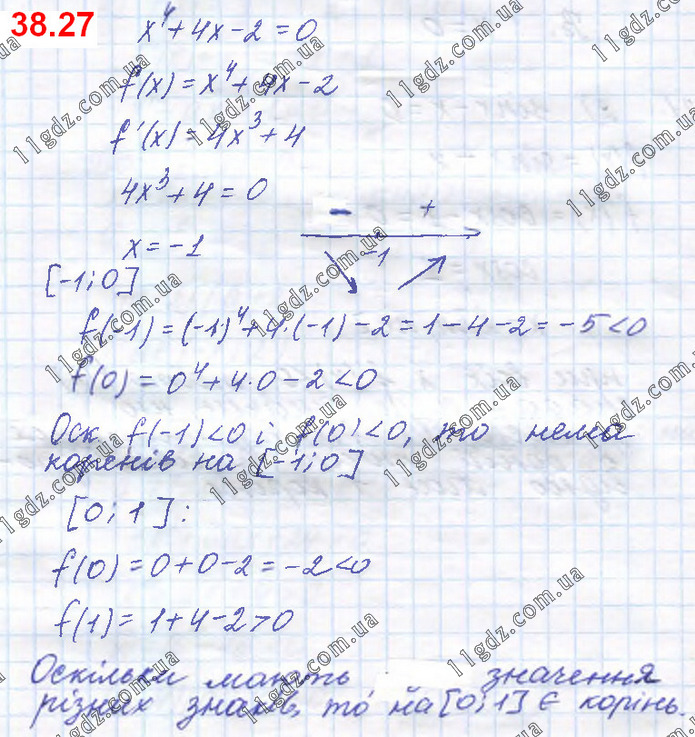 38.27
x⁴+4x-2=0
f(x)=x⁴+4x-2
f'(x)=4x³+4
4x³+4=0
- +
x=-1
-1
[-1;0]
f(-1)=(-1)⁴+4·(-1)-2=1-4-2=-5<0
f(0)=0⁴+4·0-2<0
Оск. f(-1)<0 і f(0)<0, то нема
коренів на [-1;0]
[0;1]:
f(0)=0+0-2=-2<0
f(1)=1+4-2>0
Оскільки мають значення
різних знаків, то на [0;1] Є корінь.
11gdz.com.ua